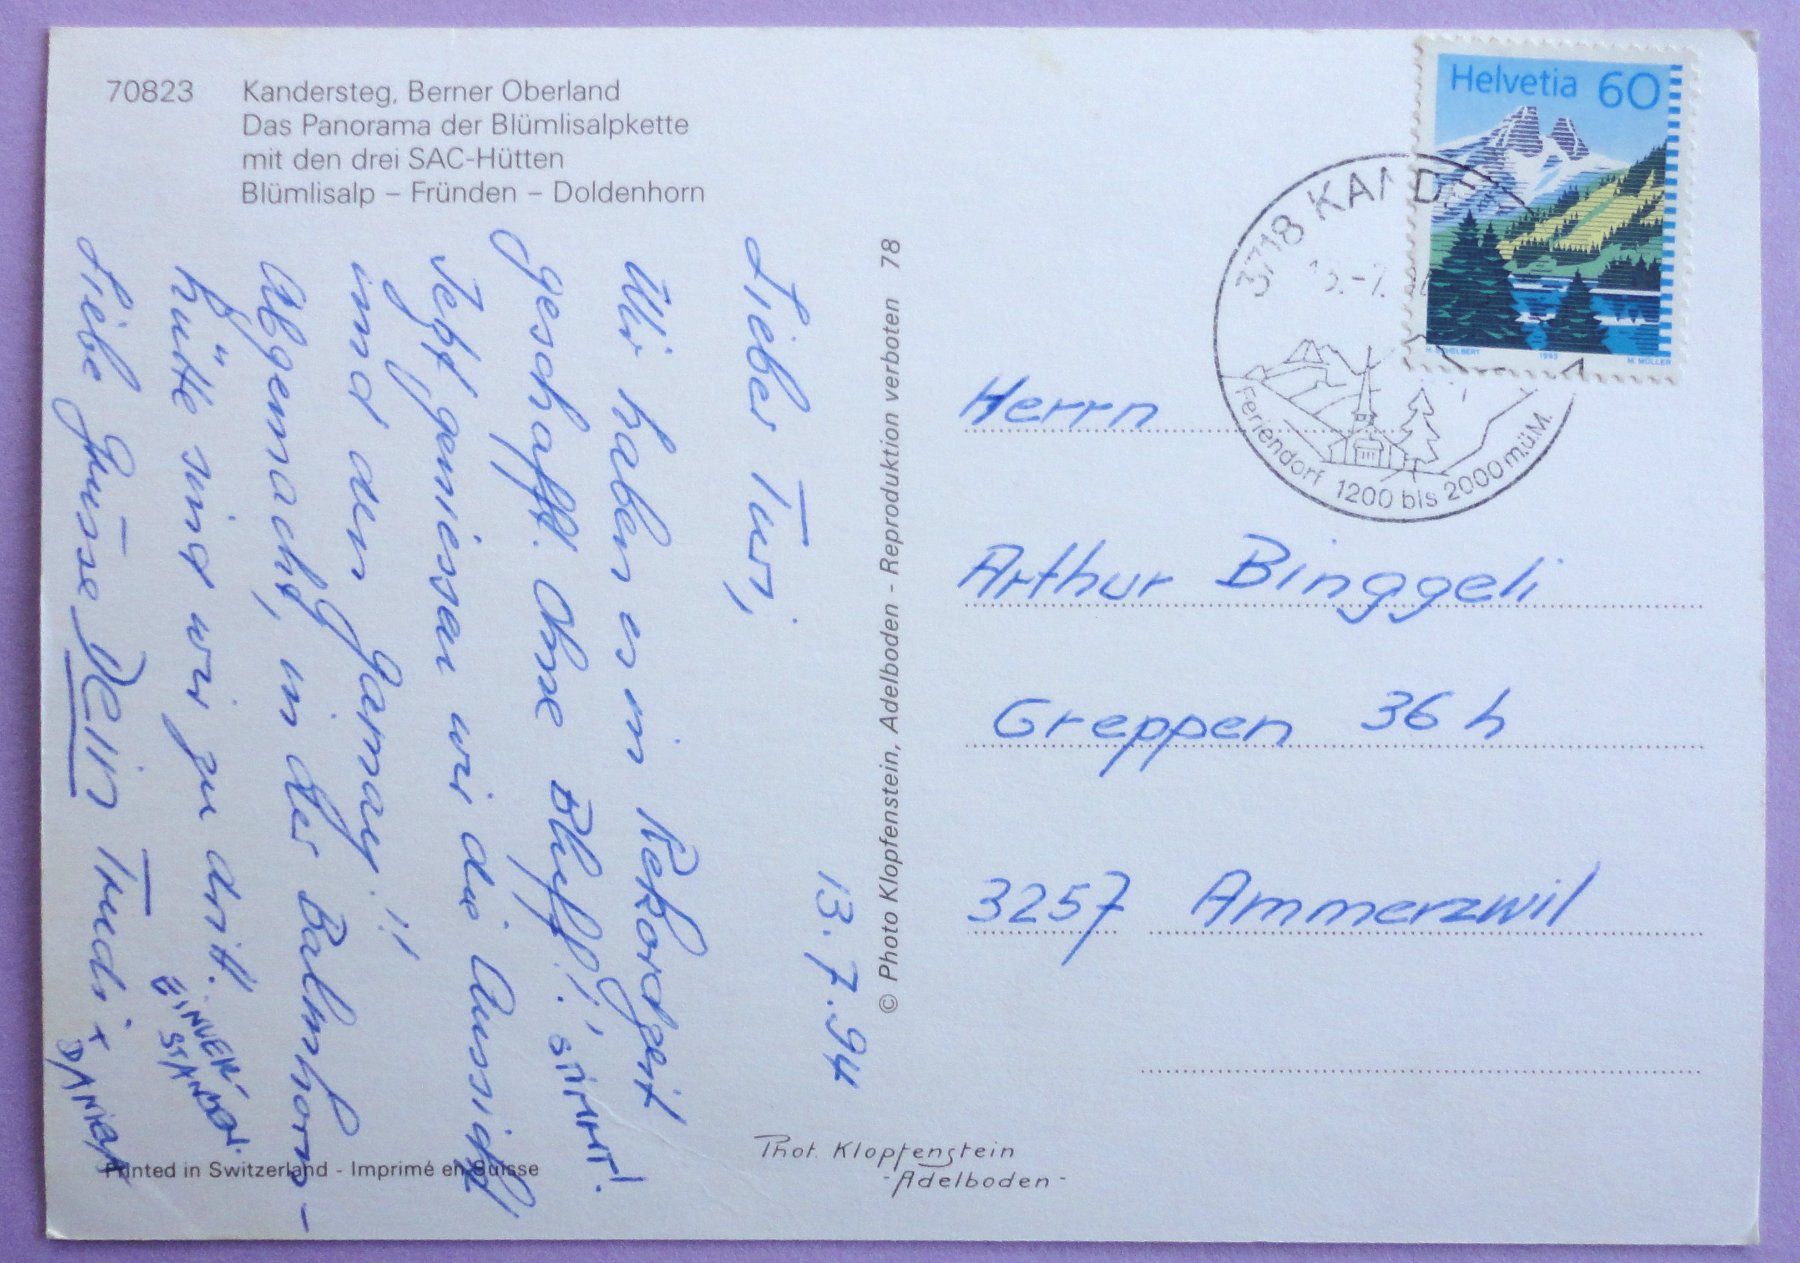 70823 Kandersteg, Berner Oberland
Das Panorama der Blümlisalpkette
mit den drei SAC-Hütten
Blümlisalp – Fründen – Doldenhorn
13.7.94
Lieber Turi,
Wir haben es in Rekordzeit
geschafft. Ohne Bluff!! STIMMT!
Jetzt geniessen wir die Aussicht
und den
Abgemacht, in der Balmhorn-
hütte sind wir zu dritt. EINVER-
STANDEN.
Liebe Grüsse Dein Trudi +
DANIEL
Printed in Switzerland - Imprimé en Suisse
© Photo Klopfenstein, Adelboden - Reproduktion verboten 78
Phot. Klopfenstein
- Adelboden -
Helvetia 60
H. SCHELBERT 1993 M. MÜLLER
3718 KANDE
Feriendorf 1200 bis 2000 m.ü.M.
Herrn
Arthur Binggeli
Greppen 36 h
3257 Ammerzwil